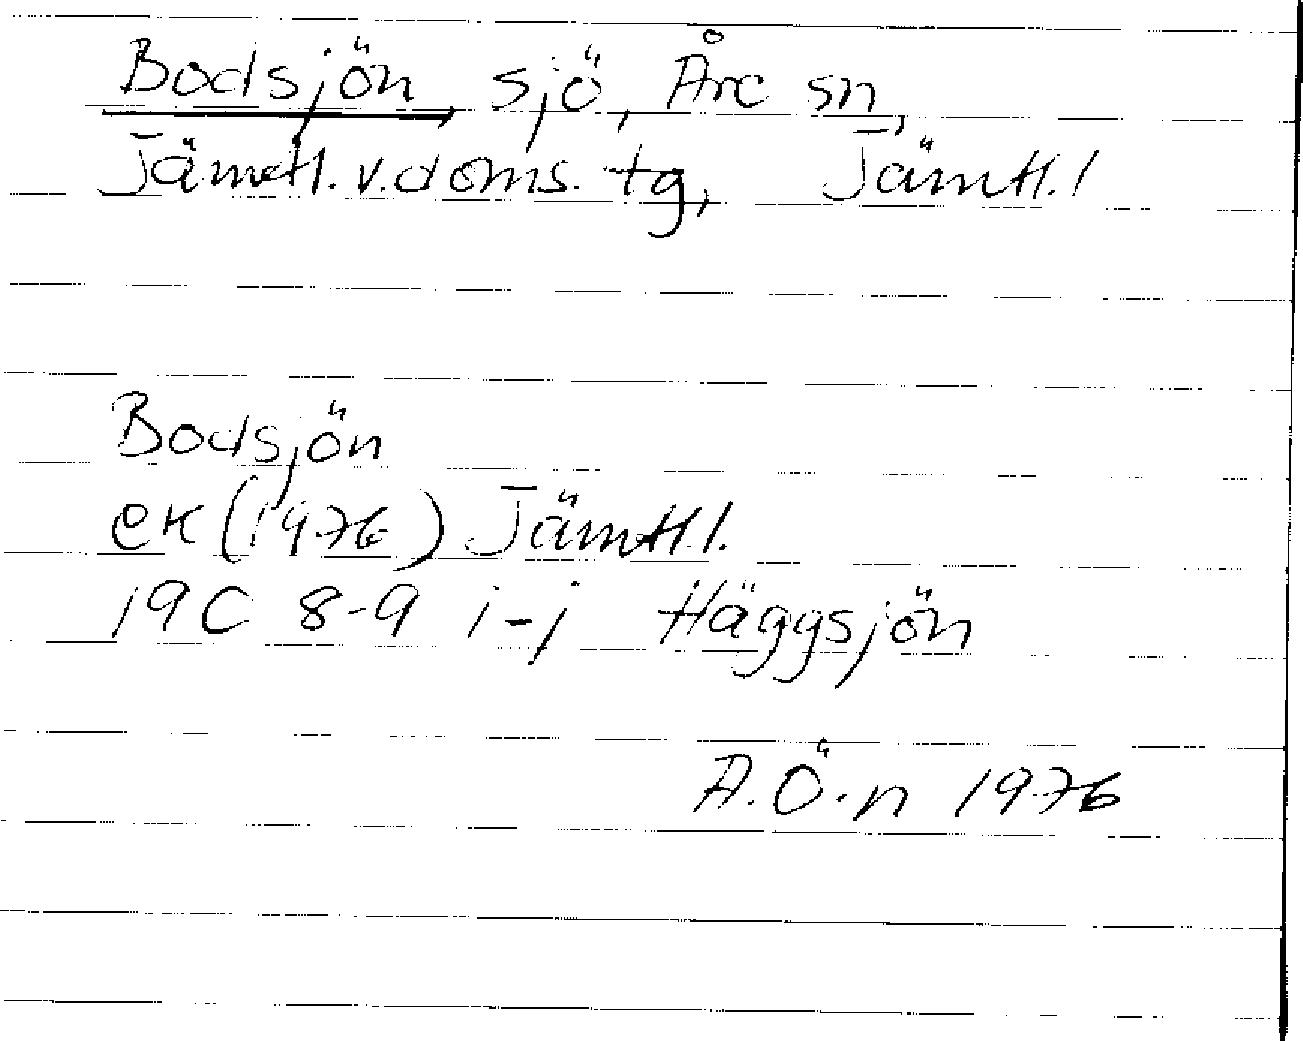 Bodsjön, sjö, Åre sn,
Jämtl. v. doms. tg, Jämtl. l
Bodsjön
ek (1976) Jämtl. l.
19C 8-9 i-j Häggsjön
A. Ö-n 1976